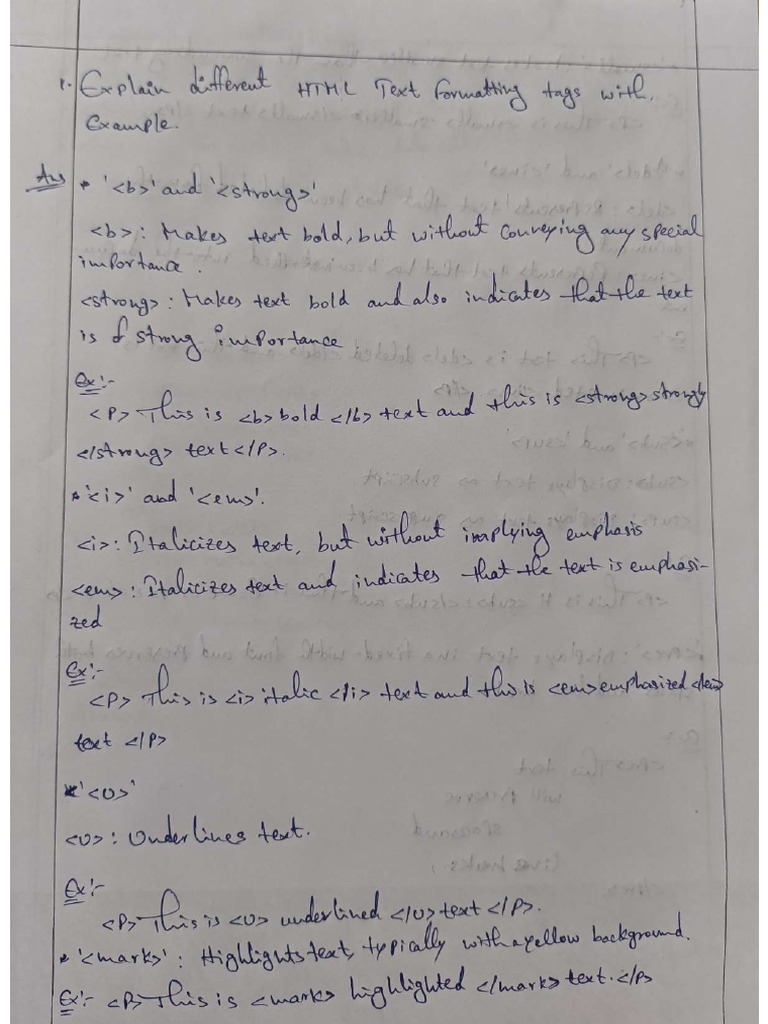 1. Explain different HTML Text Formatting tags with.
Example.
Ans * '<b>' and '<strong>'
<b>: Makes text bold, but without conveying any special
importance.
<strong>: Makes text bold and also indicates that the text
is of strong importance
Ex:-
<P> This is <b> bold </b> text and this is <strong> strongly
</strong> text </P>.
* '<i>' and '<em>'.
<i>: Italicizes text, but without implying emphasis
<em>: Italicizes text and indicates that the text is emphasi-
zed
Ex:-
<P> This is <i> italic </i> text and this is <em> emphasized </em>
text </P>
* '<u>'
<u>: Underlines text.
Ex:-
<P> This is <u> underlined </u> text </P>.
* '<mark>': Highlights text, typically with a yellow background.
Ex:- <P> This is <mark> highlighted </mark> text. </P>